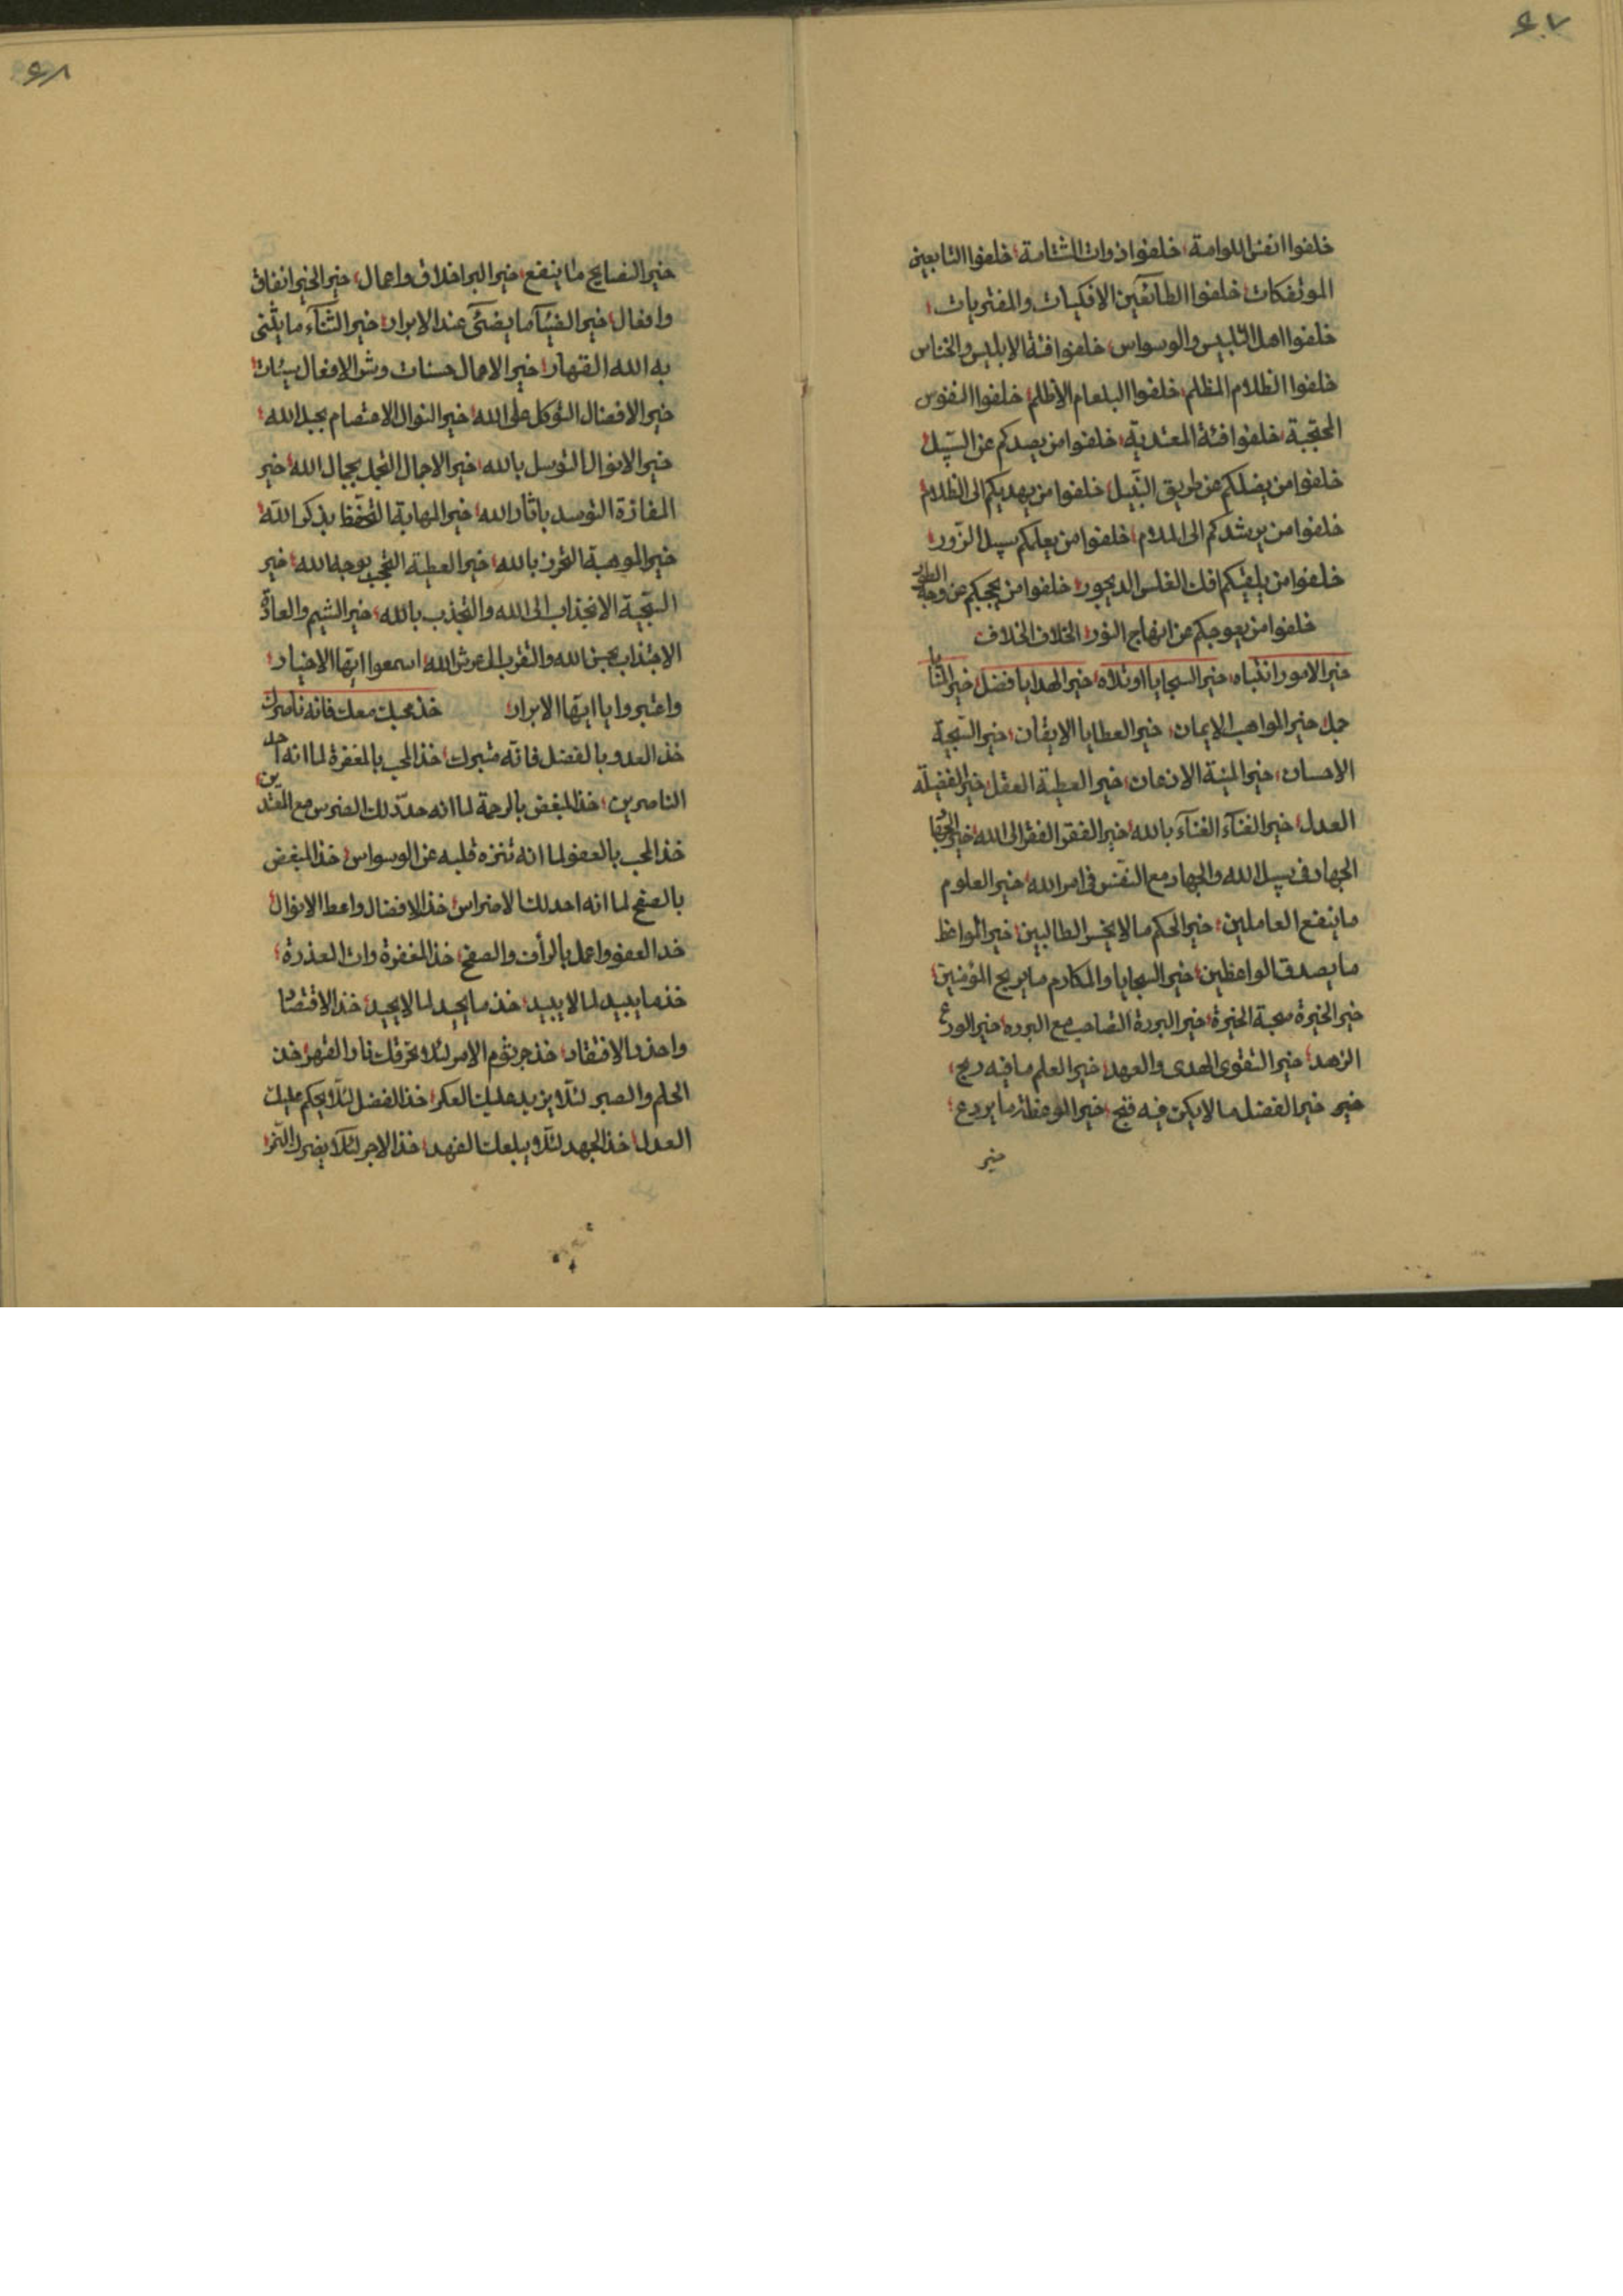 ٤٠٧
خلفوا انفس اللوامة، خلفوا ذوات الشتامة، خلفوا التابعين
الموتفكات، خلفوا الطائفين الافكيات والمفتريات،
خلفوا اهل التلبيس والوسواس، خلفوا فئة الابليس والخناس
خلفوا الظلام المظلم، خلفوا البلعام الاظلم، خلفوا النفوس
المحتجبة، خلفوا فئة المعتدية، خلفوا من يصدكم عن السبيل،
خلفوا من يضلكم عن طريق النبيل، خلفوا من يهديكم الى الظلام،
خلفوا من يرشدكم الى الملام، خلفوا من يعلمكم سبيل الزور،
خلفوا من يلقيكم افك الغلس الديجور، خلفوا من يحجبكم عن وجه
خلفوا من يعوجكم عن انهاج النور، الخلاف الخلاف
خير الامور انتباه، خير السجايا اوتلاه، خير الهدايا فضل، خير
خير المواهب الايمان، خير العطايا الايقان، خير السجية
الاحسان، خير المنية الاذعان، خير العطية العقل، خير الفضيلة
العدل، خير الغنآء الغنآء بالله، خير الفقر الفقر الى الله، خير
الجهاد فى سبيل الله والجهاد مع النفس فى امر الله، خير العلوم
ما ينفع العاملين، خير الحكم ما لا يخسر الطالبين، خير المواعظ
ما يصدق الواعظين، خير السجايا والمكارم ما يربح المؤمنين،
خير الخيرة صحبة الخيرة، خير البررة التصاحب مع البرره، خير الورع
الزهد، خير التقوى الهدى والعهد، خير العلم ما فيه ربح،
خير خير الفضل ما لا يكن فيه قبح، خير الموعظة ما يردع،
خير
٤٠٨
خير النصايح ما ينفع، خير البر اخلاق واعمال، خير الخير انفاق
وافعال، خير الضيآء ما يضئ عند الابرار، خير الثنآء ما يثنى
به الله القهار، خير الاعمال حسنات وشر الافعال سيئات،
خير الافضال التوكل على الله، خير النوال الاعتصام بحبل الله،
خير الانوال التوسل بالله، خير الاجمال التجمل بجمال الله، خير
المفازة التوسد باثار الله، خير المهابة التحفظ بذكر الله،
خير الموهبة التعرف بالله، خير العطية التوجه بوجه الله، خير
السجية الانجذاب الى الله والتجذب بالله، خير الشيم والعادة
الاجتذاب بحسن الله والتقرب الى عرش الله، اسمعوا ايها الاخيار،
واعتبروا يا ايها الابرار، خذ محبك معك فانه ناصرك
خذ العدو بالفضل فانه مثبرك، خذ المحب بالمغفرة لما انه احد
الناصرين، خذ المبغض بالرحمة لما انه حدد لك الضرس مع المعتدين،
خذ المحب بالعفو لما انه تنزه قلبه عن الوسواس، خذ المبغض
بالصفح لما انه احد لك الاضراس، خذ الافضال واعط الانوال،
خد العفو واعمل بالرأف والصفح، خذ المغفرة وات العذرة،
خذ ما يبيد لما لا يبيد، خذ ما يحيد لما لا يحيد، خذ الاقتصا
واحذر الافتقاد، خذ جرثوم الامر لئلا تحرقك نار القهر، خذ
الحلم والصبر لئلا يزيد عليك العكر، خذ الفضل لئلا يحكم عليك
العدل، خذ الجهد لئلا يبلعك الفهد، خذ الاجر لئلا يضرك